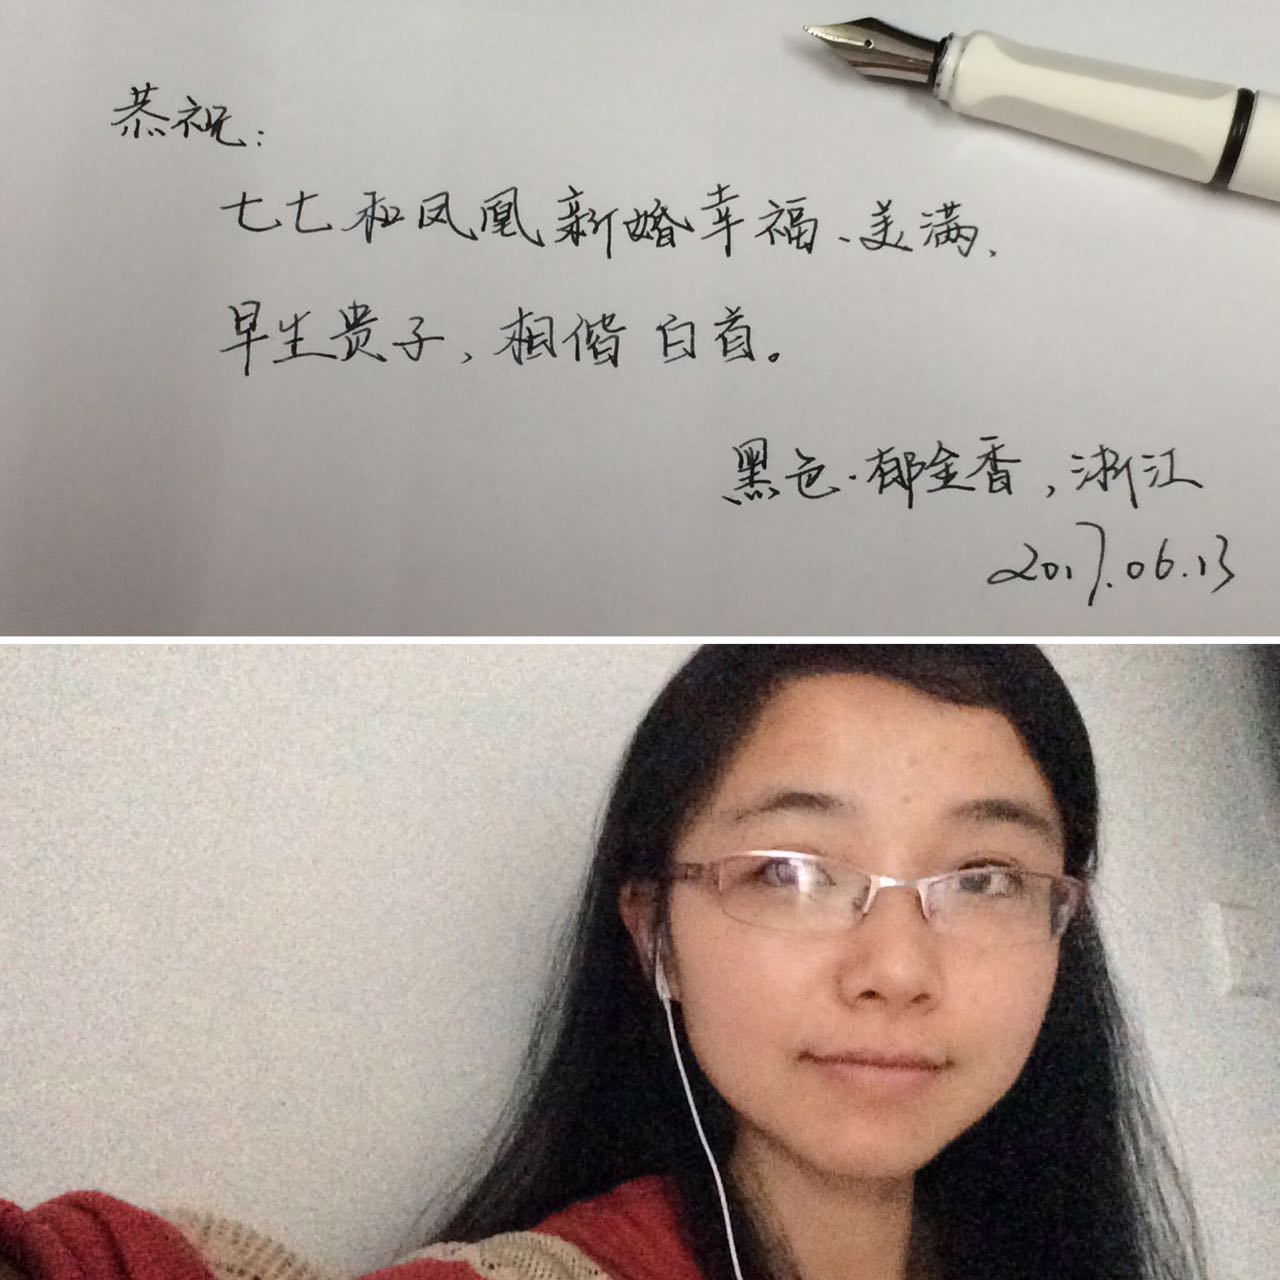 恭祝：
七七和凤凰新婚幸福、美满、
早生贵子，相偕白首。
黑色·郁金香，浙江
2017.06.13